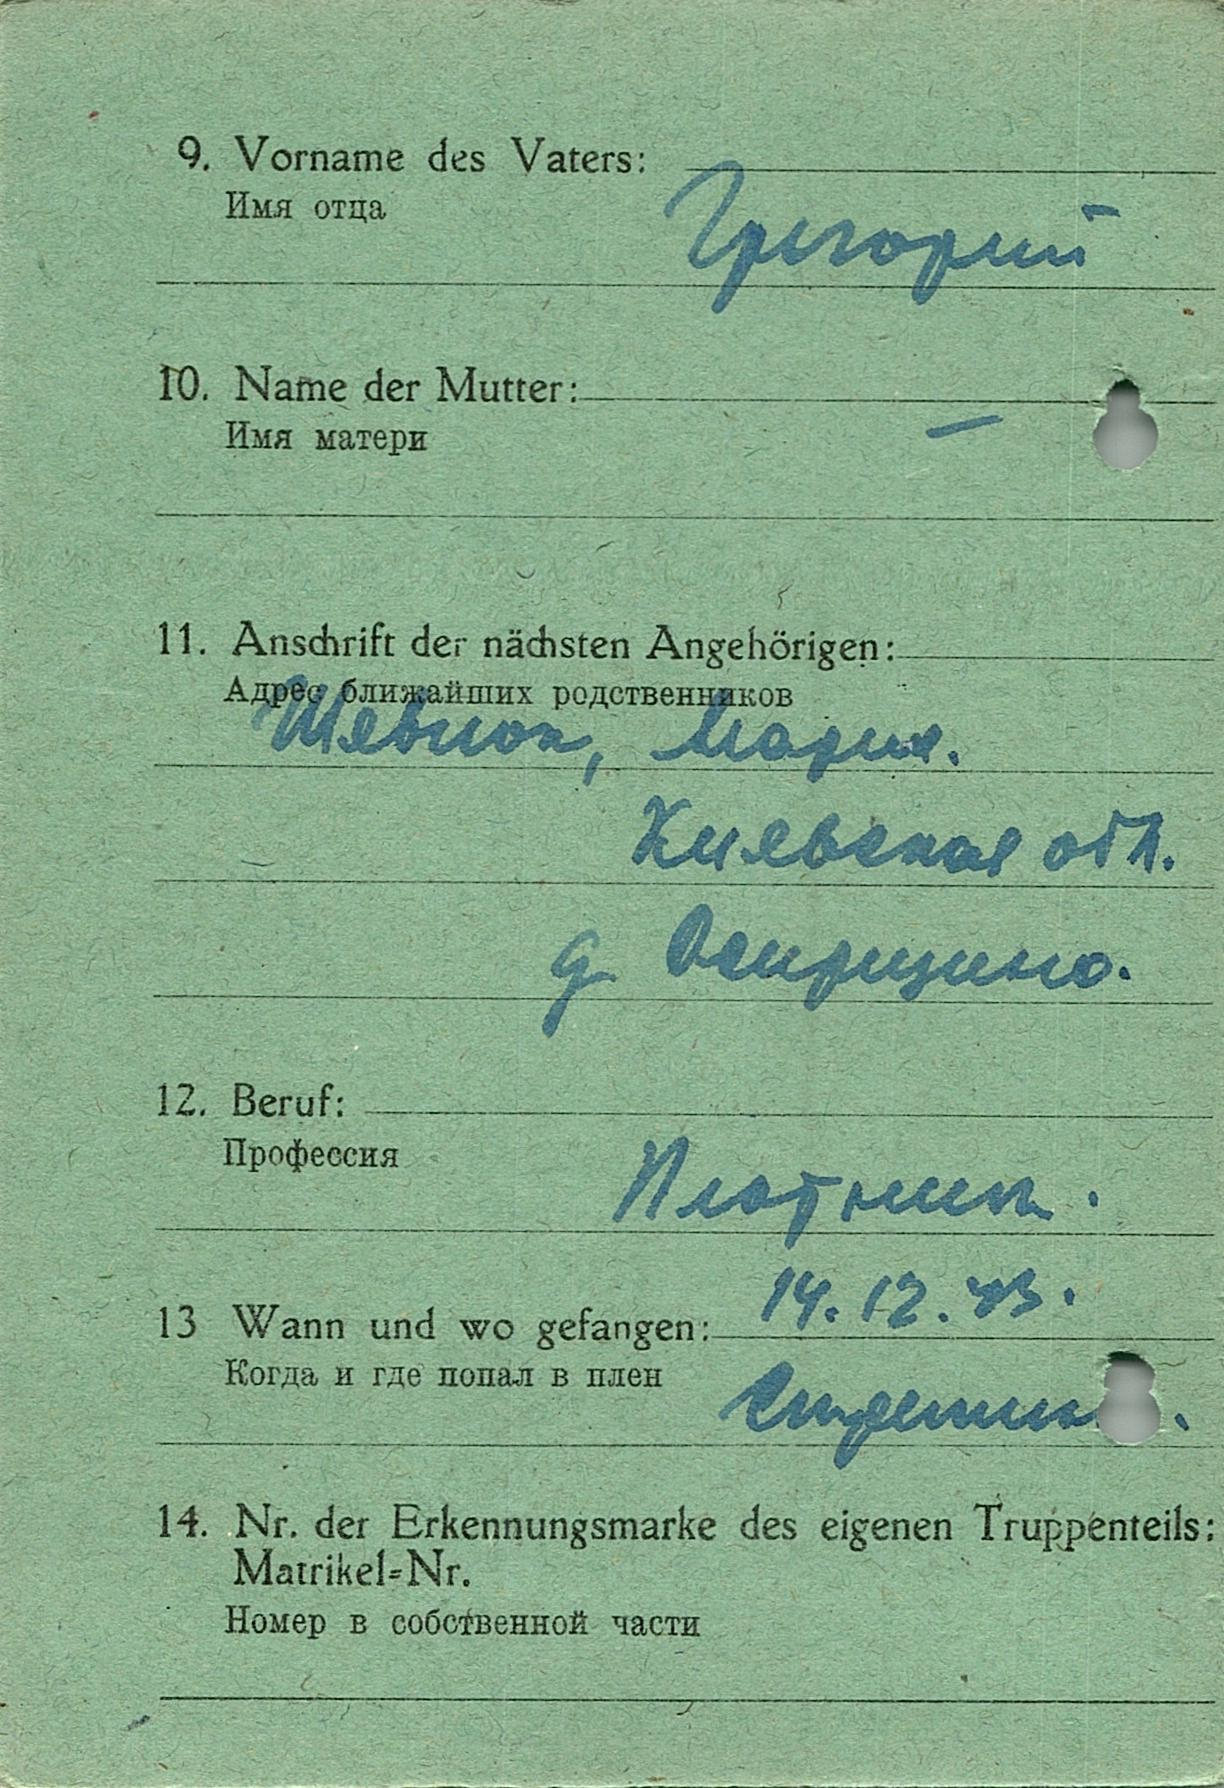 9. Vorname des Vaters:
Имя отца
Григорий
10. Name der Mutter:
Имя матери
—
11. Anschrift der nächsten Angehörigen:
Адрес ближайших родственников
Мария.
Киевская обл.
д.
12. Beruf:
Профессия
Плотник.
14.12.43.
13 Wann und wo gefangen:
Когда и где попал в плен
14. Nr. der Erkennungsmarke des eigenen Truppenteils:
Matrikel=Nr.
Номер в собственной части